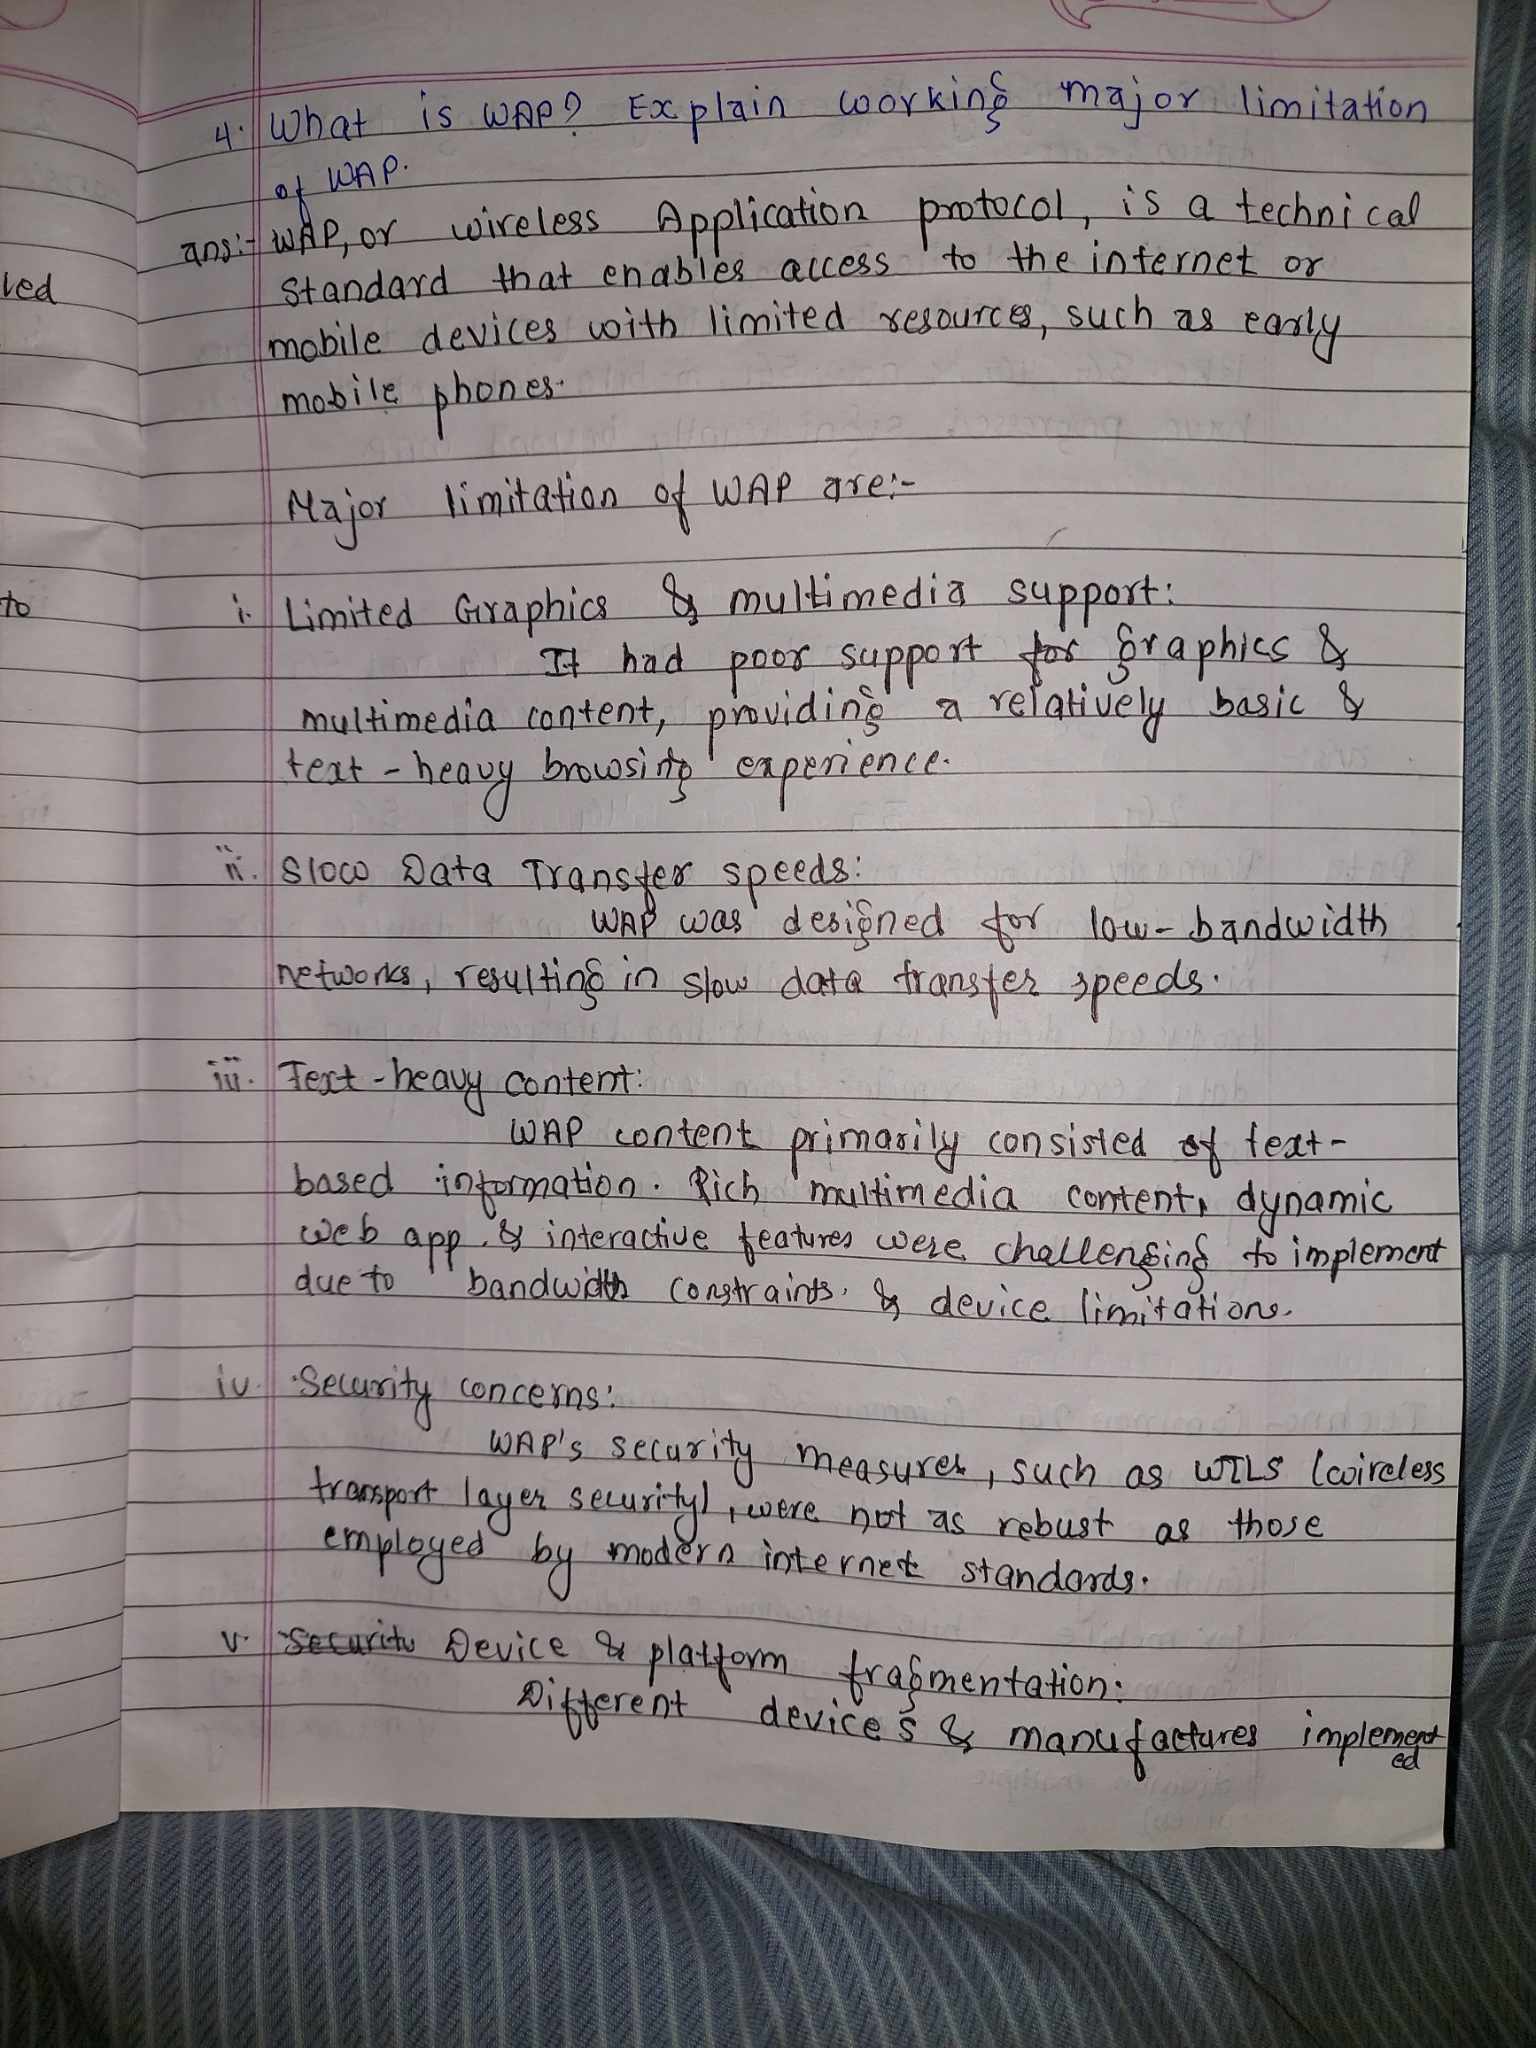 4. What is WAP? Explain working major limitation
of WAP.
ans:- WAP, or wireless Application protocol, is a technical
standard that enables access to the internet or
mobile devices with limited resources, such as early
mobile phones.
Major limitation of WAP are:-
i. Limited Graphics & multimedia support:
It had poor support for graphics &
multimedia content, providing a relatively basic &
text-heavy browsing experience.
ii. Slow Data Transfer speeds:
WAP was designed for low-bandwidth
networks, resulting in slow data transfer speeds.
iii. Text-heavy content:
WAP content primarily consisted of text-
based information. Rich multimedia content, dynamic
web app. & interactive features were challenging to implement
due to bandwidth constraints. & device limitations.
iv. Security concerns:
WAP's security measures, such as WTLS (wireless
transport layer security), were not as rebust as those
employed by modern internet standards.
v. Securitu Device & platform fragmentation:
Different devices & manufactures implement
ed
led
to